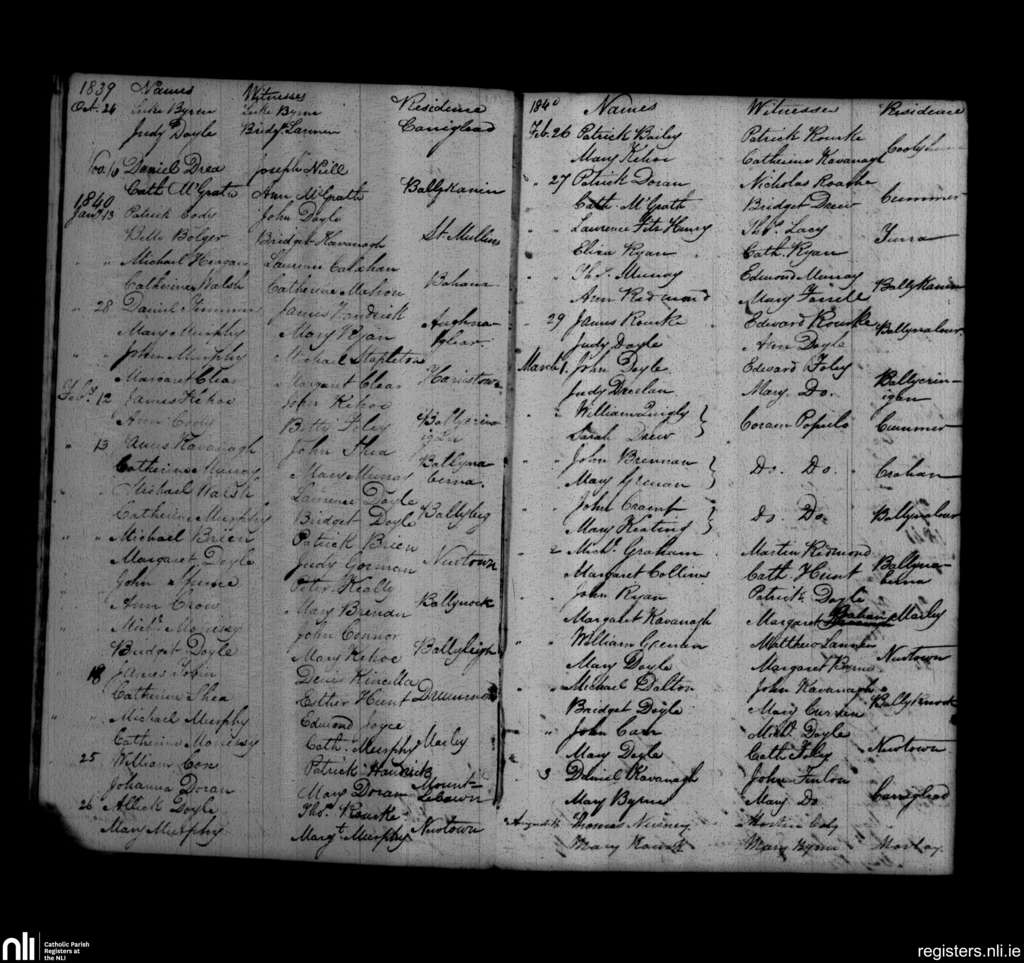 1839 Names Witnesses Residence
Oct. 26 Luke Byrne Luke Byrne
Judy Doyle Bridgt. Lannen Carriglead
Nov. 16 Daniel Drea Joseph Neill
Cath McGrath Ann McGrath Ballykanin
1840
Jany. 13 Patrick Cody John Doyle
Bella Bolger Bridget Kavanagh St Mullins
" " Michael Laurence Calahan
Catherine Walsh Catherine Bahana
" 28 Daniel James Handrick
Mary Murphy Mary Ryan
" " John Murphy Michael Stapleton
Margaret Clear Margaret Clear
Feby. 12 James Kehoe John Kehoe
Ann Betty Foley
" 13 James Kavanagh John Shea
Catherine Murray Mary Ballyna
Michael Walsh Laurence Doyle
Catherine Murphy Bridget Doyle Ballybeg
" " Michael Brien Patrick Brien
Margaret Doyle Judy Gorman Newtown
John Peter Kealy
Ann Crow Mary Brenan Ballynock
Michl. John Connor
Bridget Doyle Mary Kehoe Ballyleigh
18 James Tobin Denis Kinsella
Catherine Shea Esther Hunt
" " Michael Murphy Edmond Joyce
Catherine Cath. Murphy Marley
25 William Coe Patrick Handrick
Johanna Doran Mary Doran Mount-
26 Allick Doyle Thos. Rourke
Mary Murphy Margt. Murphy Newtown
1840 Names Witnesses Residence
Feb. 26 Patrick Bailey Patrick Rourke
Mary Kehoe Catherine Kavanagh
" 27 Patrick Doran Nicholas Roarke
Cath. McGrath Bridget Drew Cummer
" " Laurence Fitz Henry Thos. Lacy
Eliza Ryan Cath. Ryan Turra
" " Thos. Murray Edmond Murray
Ann Redmond Mary Ballykanin
" 29 James Rourke Edward Rourke Ballynalour
Judy Doyle Ann Doyle
March 1. John Doyle. Edward Foley
Judy Mary Do. Ballycrin-
igan
" William Quigly } Coram Populo Cummer
Sarah Drew }
" John Brennan } Do. Do. Crohan
Mary Grenan }
John } Do. Do. Ballynalour
Mary Keating }
" 2 Michl. Graham. Martin Redmond
Margaret Collins Cath Hunt Ballyna-
John Ryan Patrick Doyle
Margaret Kavanagh Margaret Marley
" William Matthew
Mary Doyle Margaret Byrne Newtown
" " Michael Dalton John Kavanagh
Bridget Doyle Mary Curren Ballyknock
" John Carr Michl. Doyle
Mary Doyle Cath Foley Newtown
3 Daniel Kavanagh John
Mary Byrne Mary Do Carriglead
Thomas
Mary Mary Byrne
nli Catholic Parish
Registers at
the NLI
registers.nli.ie